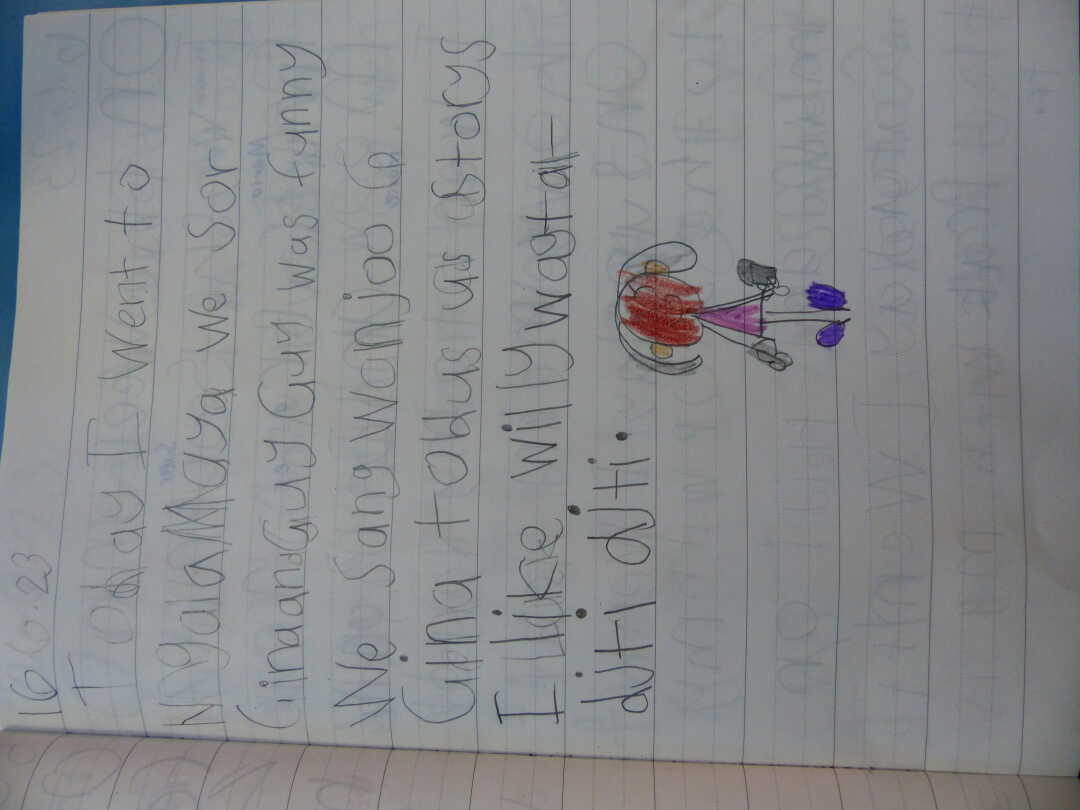 16.6.23
Today I went to
NgalaMaya we sor
Gina and Guy Guy was funny
We Sang Wanjoo G
Gina told us us storys
I like willy wagtail
djti djti.